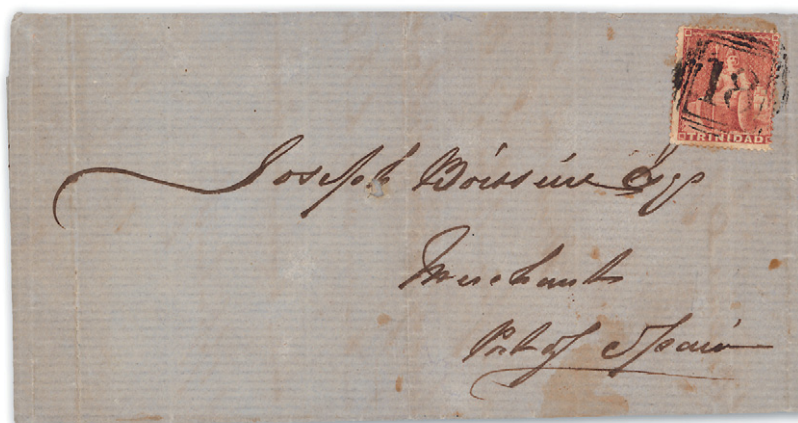 18
TRINIDAD
Joseph Boissière Esqr
Merchant
Port of Spain